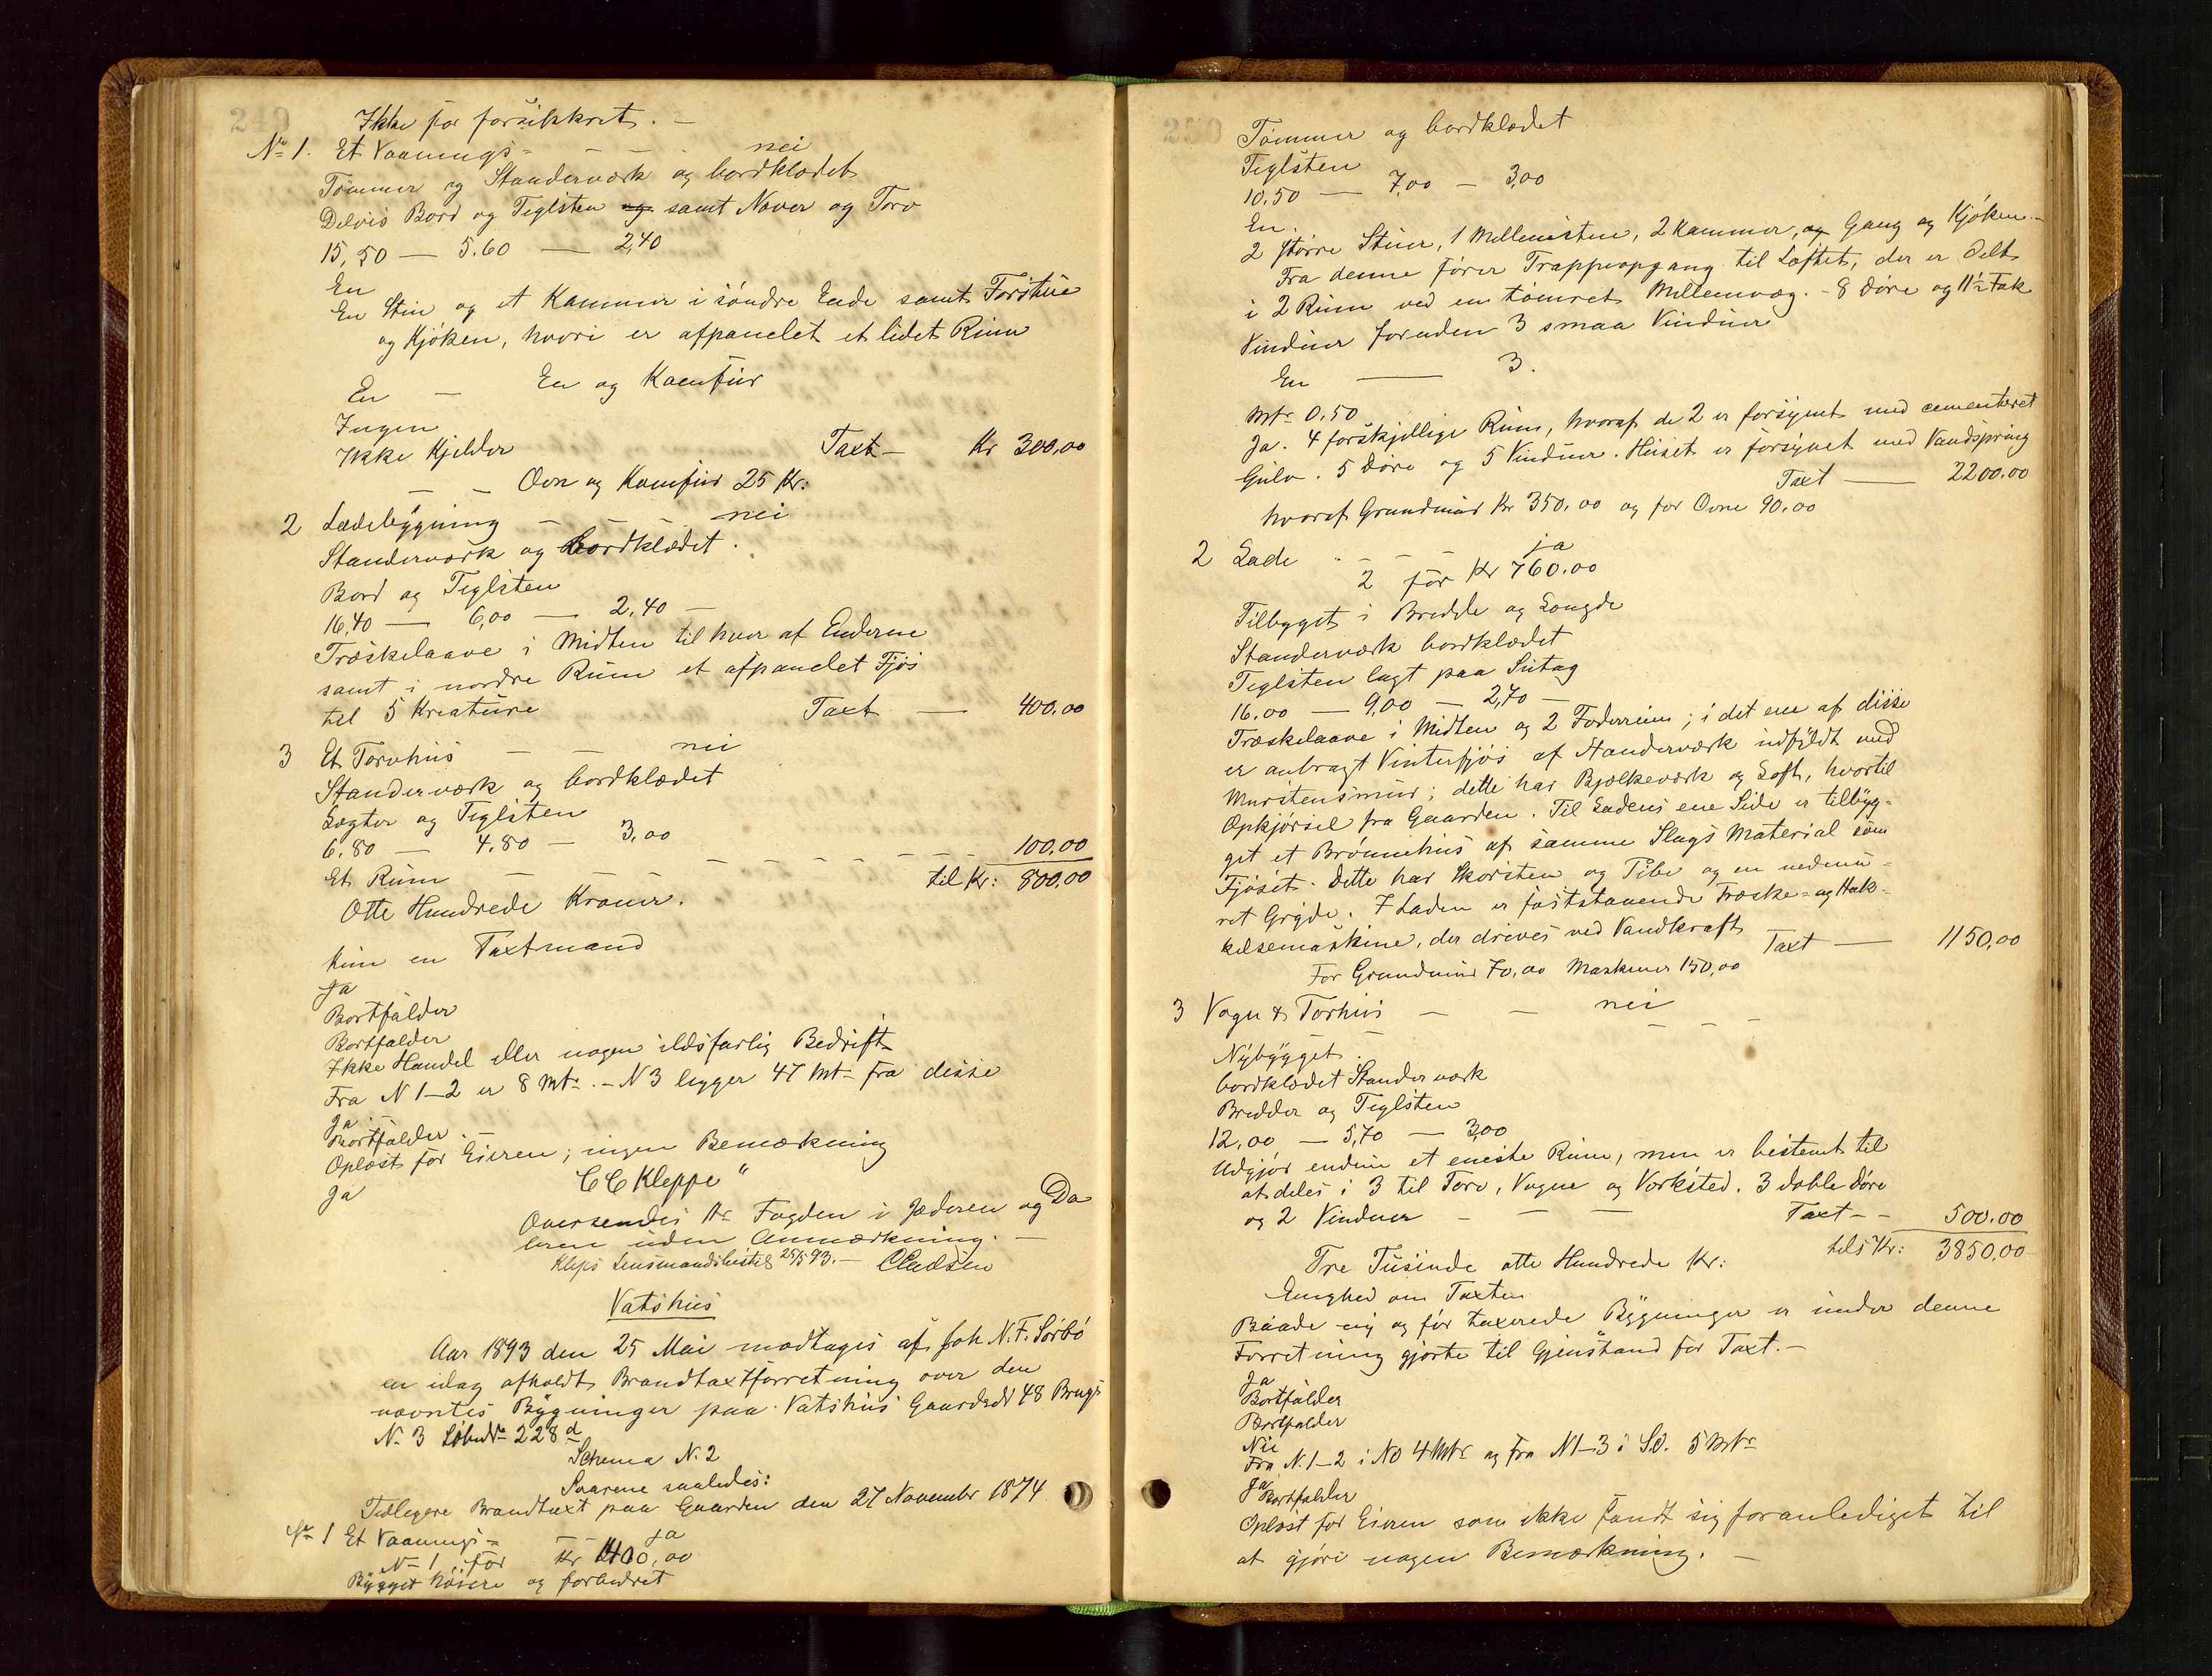 249
Ikke før forsikkret. -
No 1. Et Vaanings= - - - nei
Tømmer og Standerværk og bordklædet
Delvis Bord og Teglsten og samt Næver og Torv
15,50 — 5.60 — 2,40
En
En Stue og et Kammer i søndre Ende samt Forstue
og Kjøken, hvori er afpanelet et lidet Rum
En - En og Komfur
Ingen
Ikke Kjelder Taxt - Kr 300,00
- - Ovn og Komfur 25 Kr:
2 Ladebygning - - - nei
Standerværk og bordklædet.
Bord og Teglsten
16,40 — 6,00 — 2,40 -
Træskelaave i Midten til hver af Enderne
samt i nordre Rum et afpanelet Fjøs
til 5 Kreature Taxt — 400,00
3 Et Torvhus - - nei
Standerværk og bordklædet
Lægter og Teglsten
6.80 — 4.80 — 3,00
Et Rum - - - - - - - - 100,00
til Kr: 800,00
Otte Hundrede Kroner.
Kun en Taxtmand
Ja
Bortfalder
Bortfalder
Ikke Handel eller nogen ildsfarlig Bedrift
Fra N 1-2 er 8 Mtr. - N 3 ligger 47 Mtr fra disse
Ja
Bortfalder.
Oplæst for Eieren; ingen Bemærkning
Ja
C C Kleppe"
Oversendes Hr Fogden i Jæderen og Da
lerne uden Anmærkning. -
Kleps Lensmandsbestil 25/5 93. -
Vatshus
Aar 1893 den 25 Mai modtages af Joh N. F. Sørbø
en idag afholdt Brandtaxtforretning over den
nævntes Bygninger paa Vatshus Gaardsno 48 Brugs
N. 3 Løbeno 228 d
Schema N. 2
Svarene saaledes:
Tidligere Brandtaxt paa Gaarden den 27 November 1874
No 1 Et Vaanings= - - ja
N 1 for Kr 1400,00
Bygget høiere og forbedret
250
Tømmer og bordklædet
Teglsten
10,50 — 7,00 — 3,00
En.
2 større Stuer, 1 Mellemstue, 2 Kammer, og Gang og Kjøken. -
Fra denne fører Trappeopgang til Loftet, der er delt
i 2 Rum ved en tømret Mellemvæg. - 8 Døre og 11½ Fak
Vinduer foruden 3 smaa Vinduer
En — 3.
Mtr 0.50
Ja. 4 forskjellige Rum, hvoraf de 2 er forsynet med cementeret
Gulv. 5 Døre og 5 Vinduer. Huset er forsynet med Vandspring
Taxt — 2200.00
hvoraf Grundmur Kr 350.00 og for Ovne 90.00
2 Lade - - - ja
2 for Kr 760.00
Tilbygget i Bredde og Længde
Standerværk bordklædet
Teglsten lagt paa Sutag
16.00 — 9,00 — 2,70 -
Træskelaave i Midten og 2 Foderrum; i det ene af disse
er anbragt Vinterfjøs af Standerværk udfyldt med
Murstensmur; dette har Bjælkeværk og Loft, hvortil
Opkjørsel fra Gaarden. Til Ladens ene Side er tilbyg=
get et Brønnehus af samme Slags Material som
Fjøset. Dette har Skorsten og Pibe og en nedmu=
ret Gryde. I Laden er faststaaende Træske= og Hak=
kelsemaskine, der drives ved Vandkraft
Taxt — 1150,00
For Grundmur 70,00 Maskiner 150,00
3 Vogn & Torhus - - nei
Nybygget.
bordklædet Standerværk
Bredder og Teglsten
12,00 — 5,70 — 3,00
Udgjør endnu et eneste Rum, men er bestemt til
at deles i 3 til Torv, Vogne og Verksted. 3 doble Døre
og 2 Vinduer - - - Taxt - - 500.00
tils Kr: 3850,00
Tre Tusinde otte Hundrede Kr:
Enighed om Taxten
Baade ny og før taxerede Bygninger er under denne
Forretning gjorte til Gjenstand for Taxt. -
Ja
Bortfalder
Bortfalder
Nei
Fra N. 1-2 i NO 4 Mtr og fra N 1-3 i SO. 5 Mtr
Ja
Bortfalder
Oplæst for Eieren som ikke fandt sig foranlediget til
at gjøre nogen Bemærkning. -